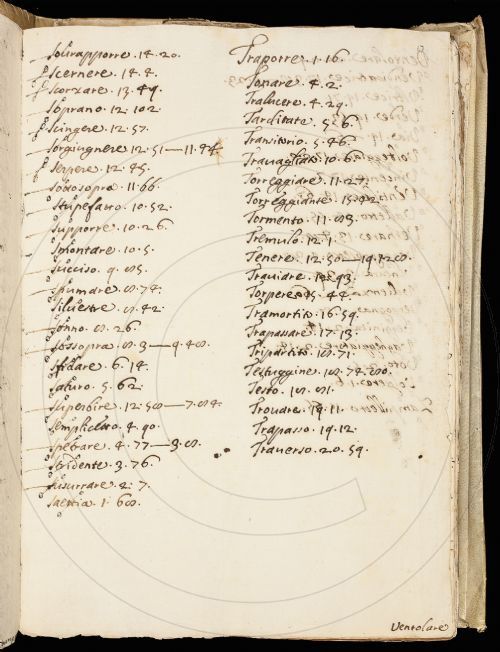 Sourapporre. 14. 20.
Scernere. 14. 4.
Scorzare. 13. 49.
Soprano. 12. 102.
Scingere. 12. 57.
Sorgiugnere. 12. 51—11. 44.
Serpere. 12. 45.
Sossopra. 11. 66.
Stupefatto. 10. 52.
Supporre. 10. 26.
Smontare. 10. 5.
Succiso. 9. 85.
Spumare. 8. 74.
Silvestre. 8. 42.
Sonno. 8. 26.
Sossopra. 8. 3—9. 48.
Sfidare. 6. 14.
Saturo. 5. 62.
Superbire. 12. 58—7. 84.
Semplicetto. 4. 90.
Spetrare. 4. 77—3. 8.
Stridente. 3. 76.
Susurrare. 2. 7.
Saettia. 1. 68.
Traporre. 1. 16.
Tonare. 4. 2.
Tralucere. 4. 29.
Tarditate. 5. 6.
Transitorio. 5. 46.
Travagliato. 10. 66.
Torreggiare. 11. 27.
Torreggiante.
Tormento. 11. 83.
Tremulo. 12. 1.
Tenere. 12. 50—19. 128.
Traviare. 93.
Torpere. 44.
Tramortito. 16. 59.
Trapassare. 17. 13.
Tripartito. 18. 71.
Testuggine. 18. 74. 80.
Testo. 18. 81.
Trovare. 19. 11.
Trapasso. 19. 12.
Traverso. 20. 59.
Ventolare